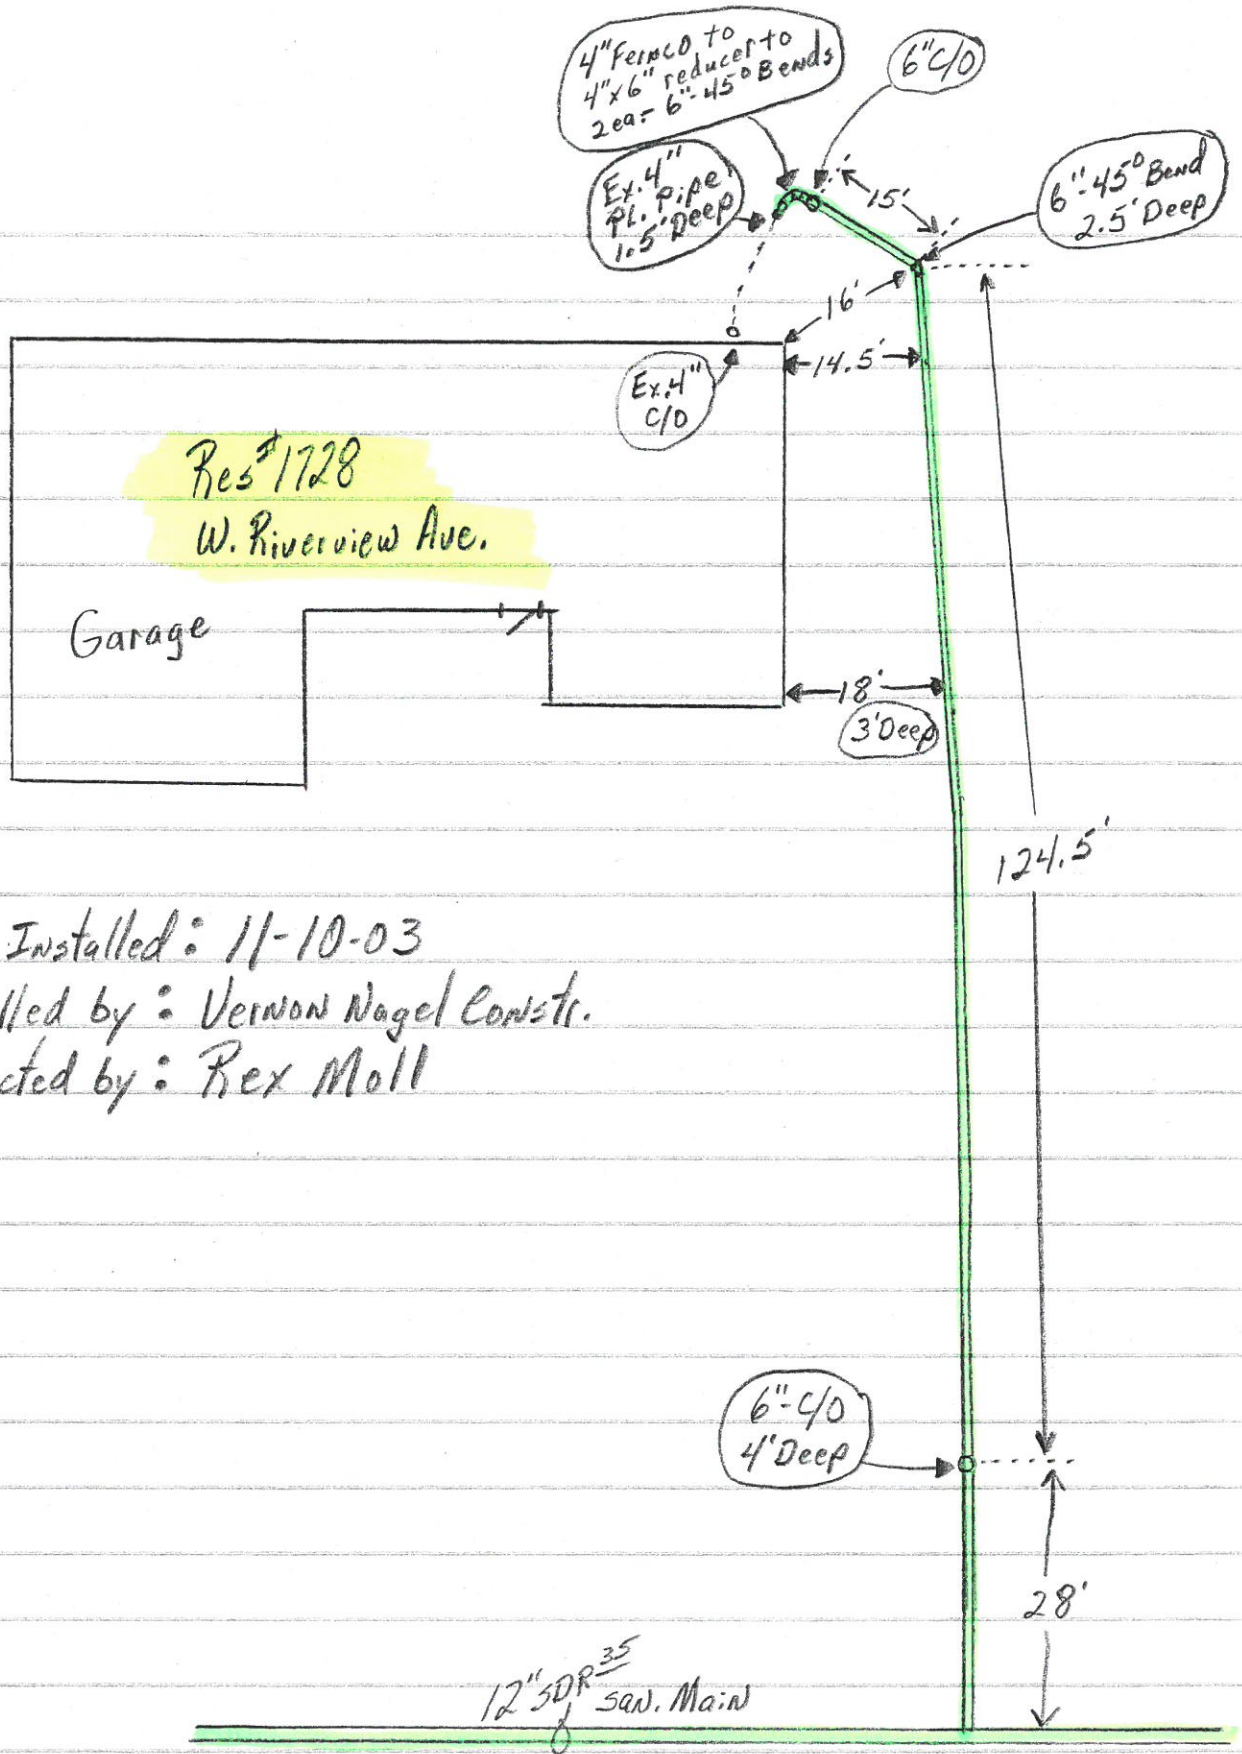 4" Fernco to
4"x6" reducer to
2ea- 6"-45° Bends
6" C/O
Ex. 4"
PL. Pipe
1.5' Deep
15'
6"-45° Bend
2.5' Deep
16'
14.5'
Ex. 4"
C/O
Res #1728
W. Riverview Ave.
Garage
18'
3' Deep
124.5'
Installed: 11-10-03
lled by: Vernon Nagel Constr.
cted by: Rex Moll
6"-C/O
4' Deep
28'
12" SDR 35 San. Main